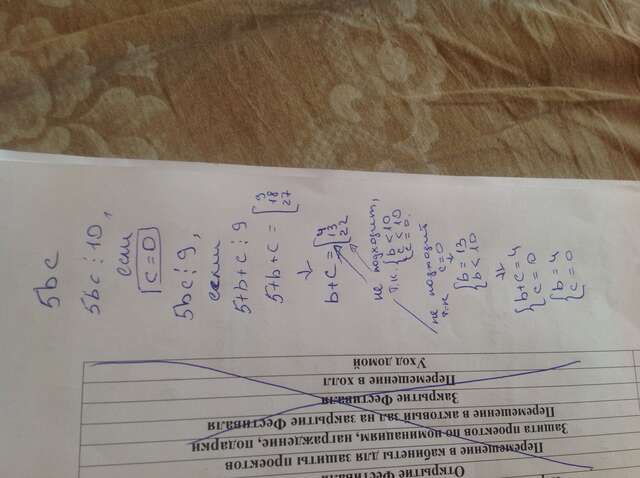 5bc
5bc ⋮ 10,
если
c=0
5bc ⋮ 9,
если
5+b+c ⋮ 9
5+b+c = [ 9 18 27
↓
b+c = [ 4 13 22
не подходит,
т.к. { b<10 c<10 c=0.
не подходит
т.к c=0
↓
{ b=13 b<10
⇓
{ b+c=4 c=0
{ b=4 c=0
Открытие Фестиваля
Перемещение в кабинеты для защиты проектов
Защита проектов по номинациям, награждение, подарки
Перемещение в актовый зал на закрытие Фестиваля
Закрытие Фестиваля
Перемещение в холл
Уход домой